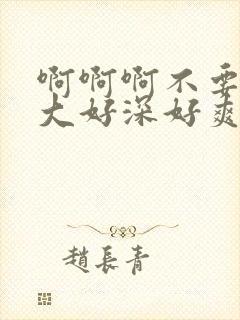 啊啊啊不要
大好深好爽
趙長青